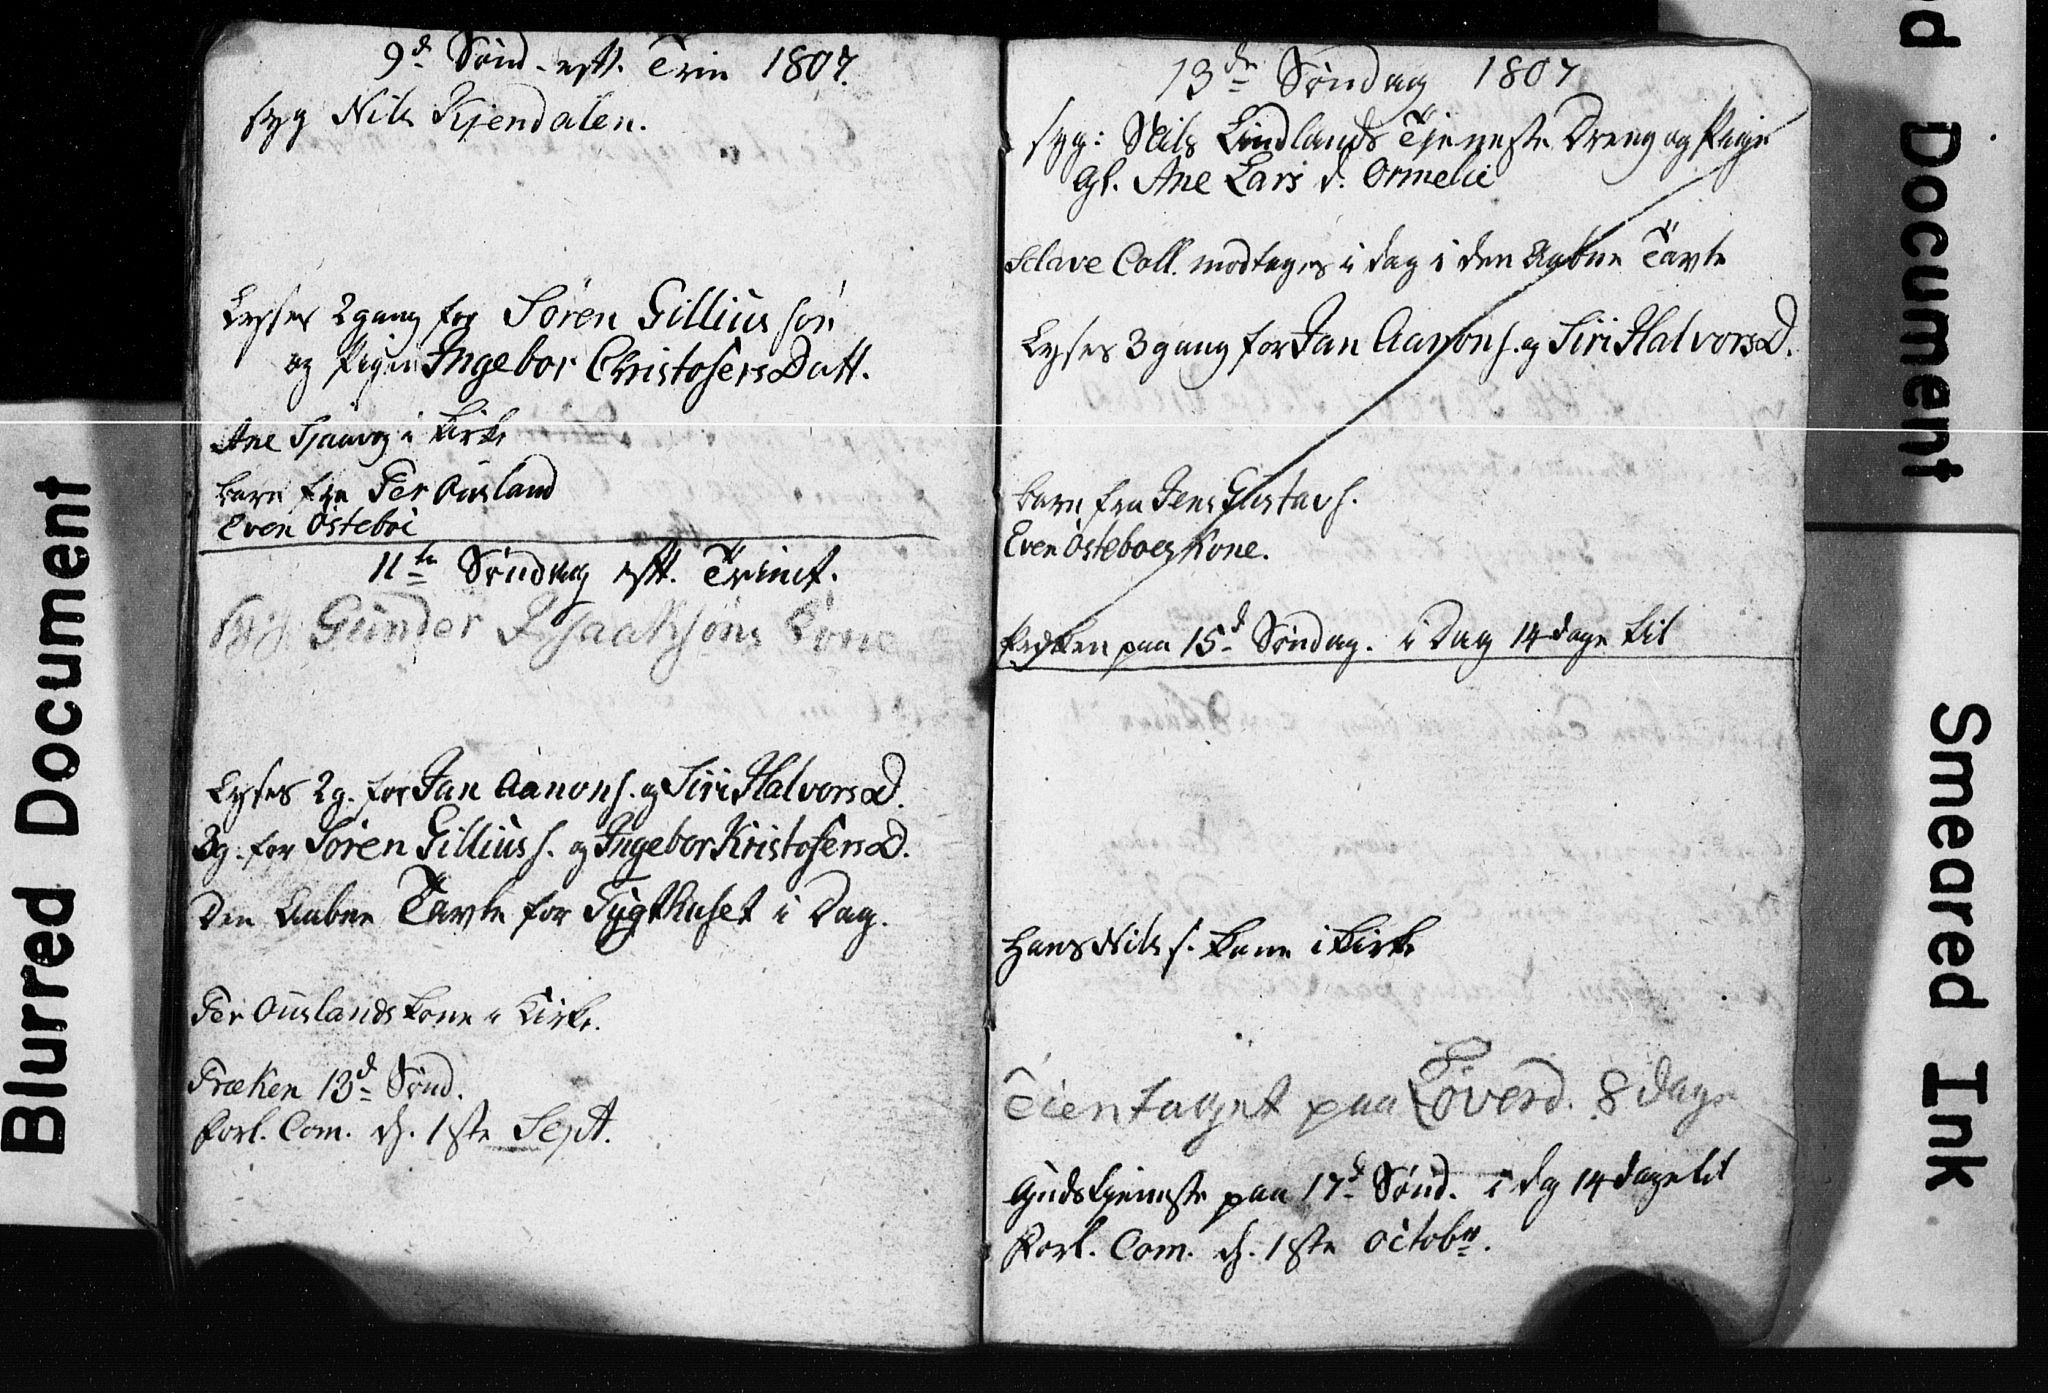 9d Sönd. eftr. Trin 1807.
syg Nils Kjendalen.
Lyses 2 gang for Sören Gillius sön
og Pigen Ingebor Christofers Datt.
Ane i Kirke
barn fra Per Ousland
Even Østeboe
11te Søndag eftr. Trinit.
syg: Gunder Isaaksøns Kone
Lyses 2 g. for Jan Aanons. og Siri Halvors D.
3 g. for Sören Gillius s. og Ingebor Kristofers D.
Den Aabne Tavle for Tugthuset i Dag.
Per Ouslands Kone i Kirke.
Præken 13d Sönd.
Forl. Com. d. 1ste Sept.
13de Søndag 1807
syg: Nils Lindlands Tjeneste Dreng og Pige
Gl. Ane Lars d. Ormelie
Sclave Coll. modtages i dag i den Aabne Tavle
Lyses 3 gang for Jan Aanons. og Siri Halvors D.
barn fra Jens Gustavs.
Even Østeboes Kone.
Præken paa 15d Søndag. i Dag 14 dage til
Hans Nils s. Kone i Kirke
Tientaget paa Löverd. 8 dage
Gudstjeneste paa 17d Sönd. i dag 14 dage til
Forl. Com. d. 1ste Octobr.
Blurred Document
Document
Smeared Ink